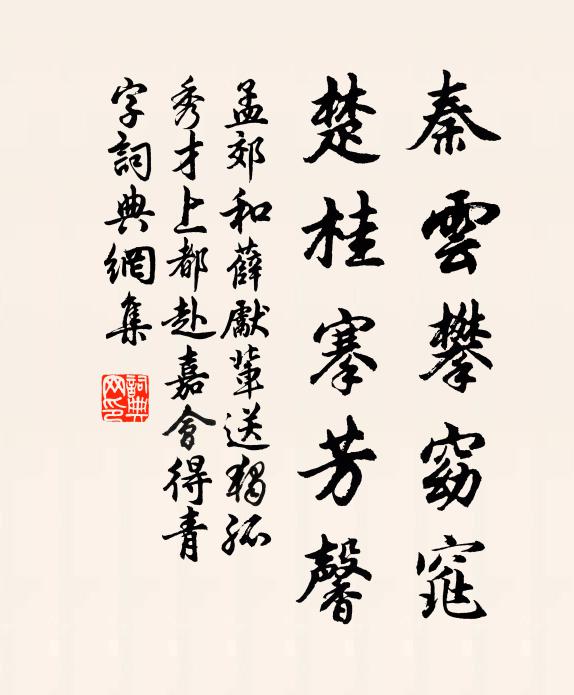 秦雲攀窈窕
楚桂搴芳馨
孟郊和薛獻輩送獨孤
秀才上都赴嘉會得青
字詞典網集
詞典網印